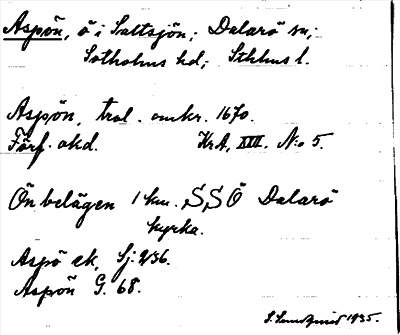 Aspön, ö i Saltsjön; Dalarö sn;
Sotholms hd; Sthlms l.
Aspön, trol. omkr. 1670.
Förf. okd. KrA, XIII. N:o 5.
Ön belägen 1 km. S,SÖ Dalarö
kyrka.
Aspö ek. Sj: 2/36.
Aspön G. 68.
1935.